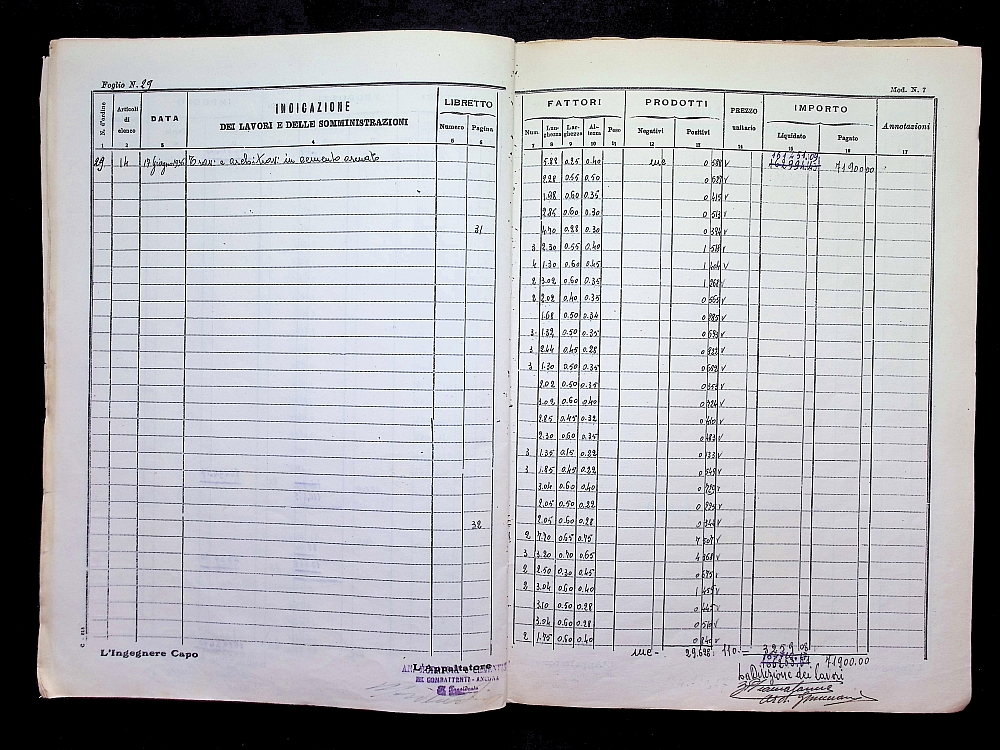 Foglio N. 29
Mod. N. 7
N. d'ordine
Articoli di elenco
DATA
INDICAZIONE
DEI LAVORI E DELLE SOMMINISTRAZIONI
LIBRETTO
Numero Pagina
FATTORI
Num. Lunghezza Larghezza Altezza Peso
PRODOTTI
Negativi Positivi
PREZZO unitario
IMPORTO
Liquidato Pagato
Annotazioni
1 2 3 4 5 6 7 8 9 10 11 12 13 14 15 16 17
29 14 Travi e architravi in cemento armato 5.88 0.25 0.40 mc 0 588 71900 00
2.28 0.55 0.50
1.98 0.60 0.35 0 415
2.85 0.60 0.30 0 513
31 4.70 0.28 0.30
3 2.30 0.55 0.40 1 518
4 1.30 0.60 0.45 1 404
2 3.02 0.60 0.35 1 268
2 2.02 0.40 0.35
1.68 0.50 0.34
3 1.32 0.50 0.35 0 693
3 2.44 0.45 0.28 0 922
3 1.30 0.50 0.35 0 682
2.02 0.50 0.35 0 353
3.02 0.60 0.40 0 724
2.85 0.45 0.32 0 410
2.30 0.60 0.35 0 483
3 1.35 0.15 0.22 0 133
3 1.85 0.45 0.22 0 548
3.04 0.60 0.40 0 729
2.05 0.50 0.22 0 225
32 2.05 0.60 0.28 0 344
2 7.70 0.65 0.75 7 507
3 3.20 0.70 0.65 4 368
2 2.50 0.30 0.45 0 675
2 3.04 0.60 0.40 1 459
3.10 0.50 0.28
3.04 0.60 0.28 0 510
2 1.75 0.60 0.40 0 840
mc - 29.628 110 = 3259 08
71900.00
L'Ingegnere Capo
L'Appaltatore
FRA COMBATTENTI - ANCONA
Il Presidente
La Direzione dei lavori